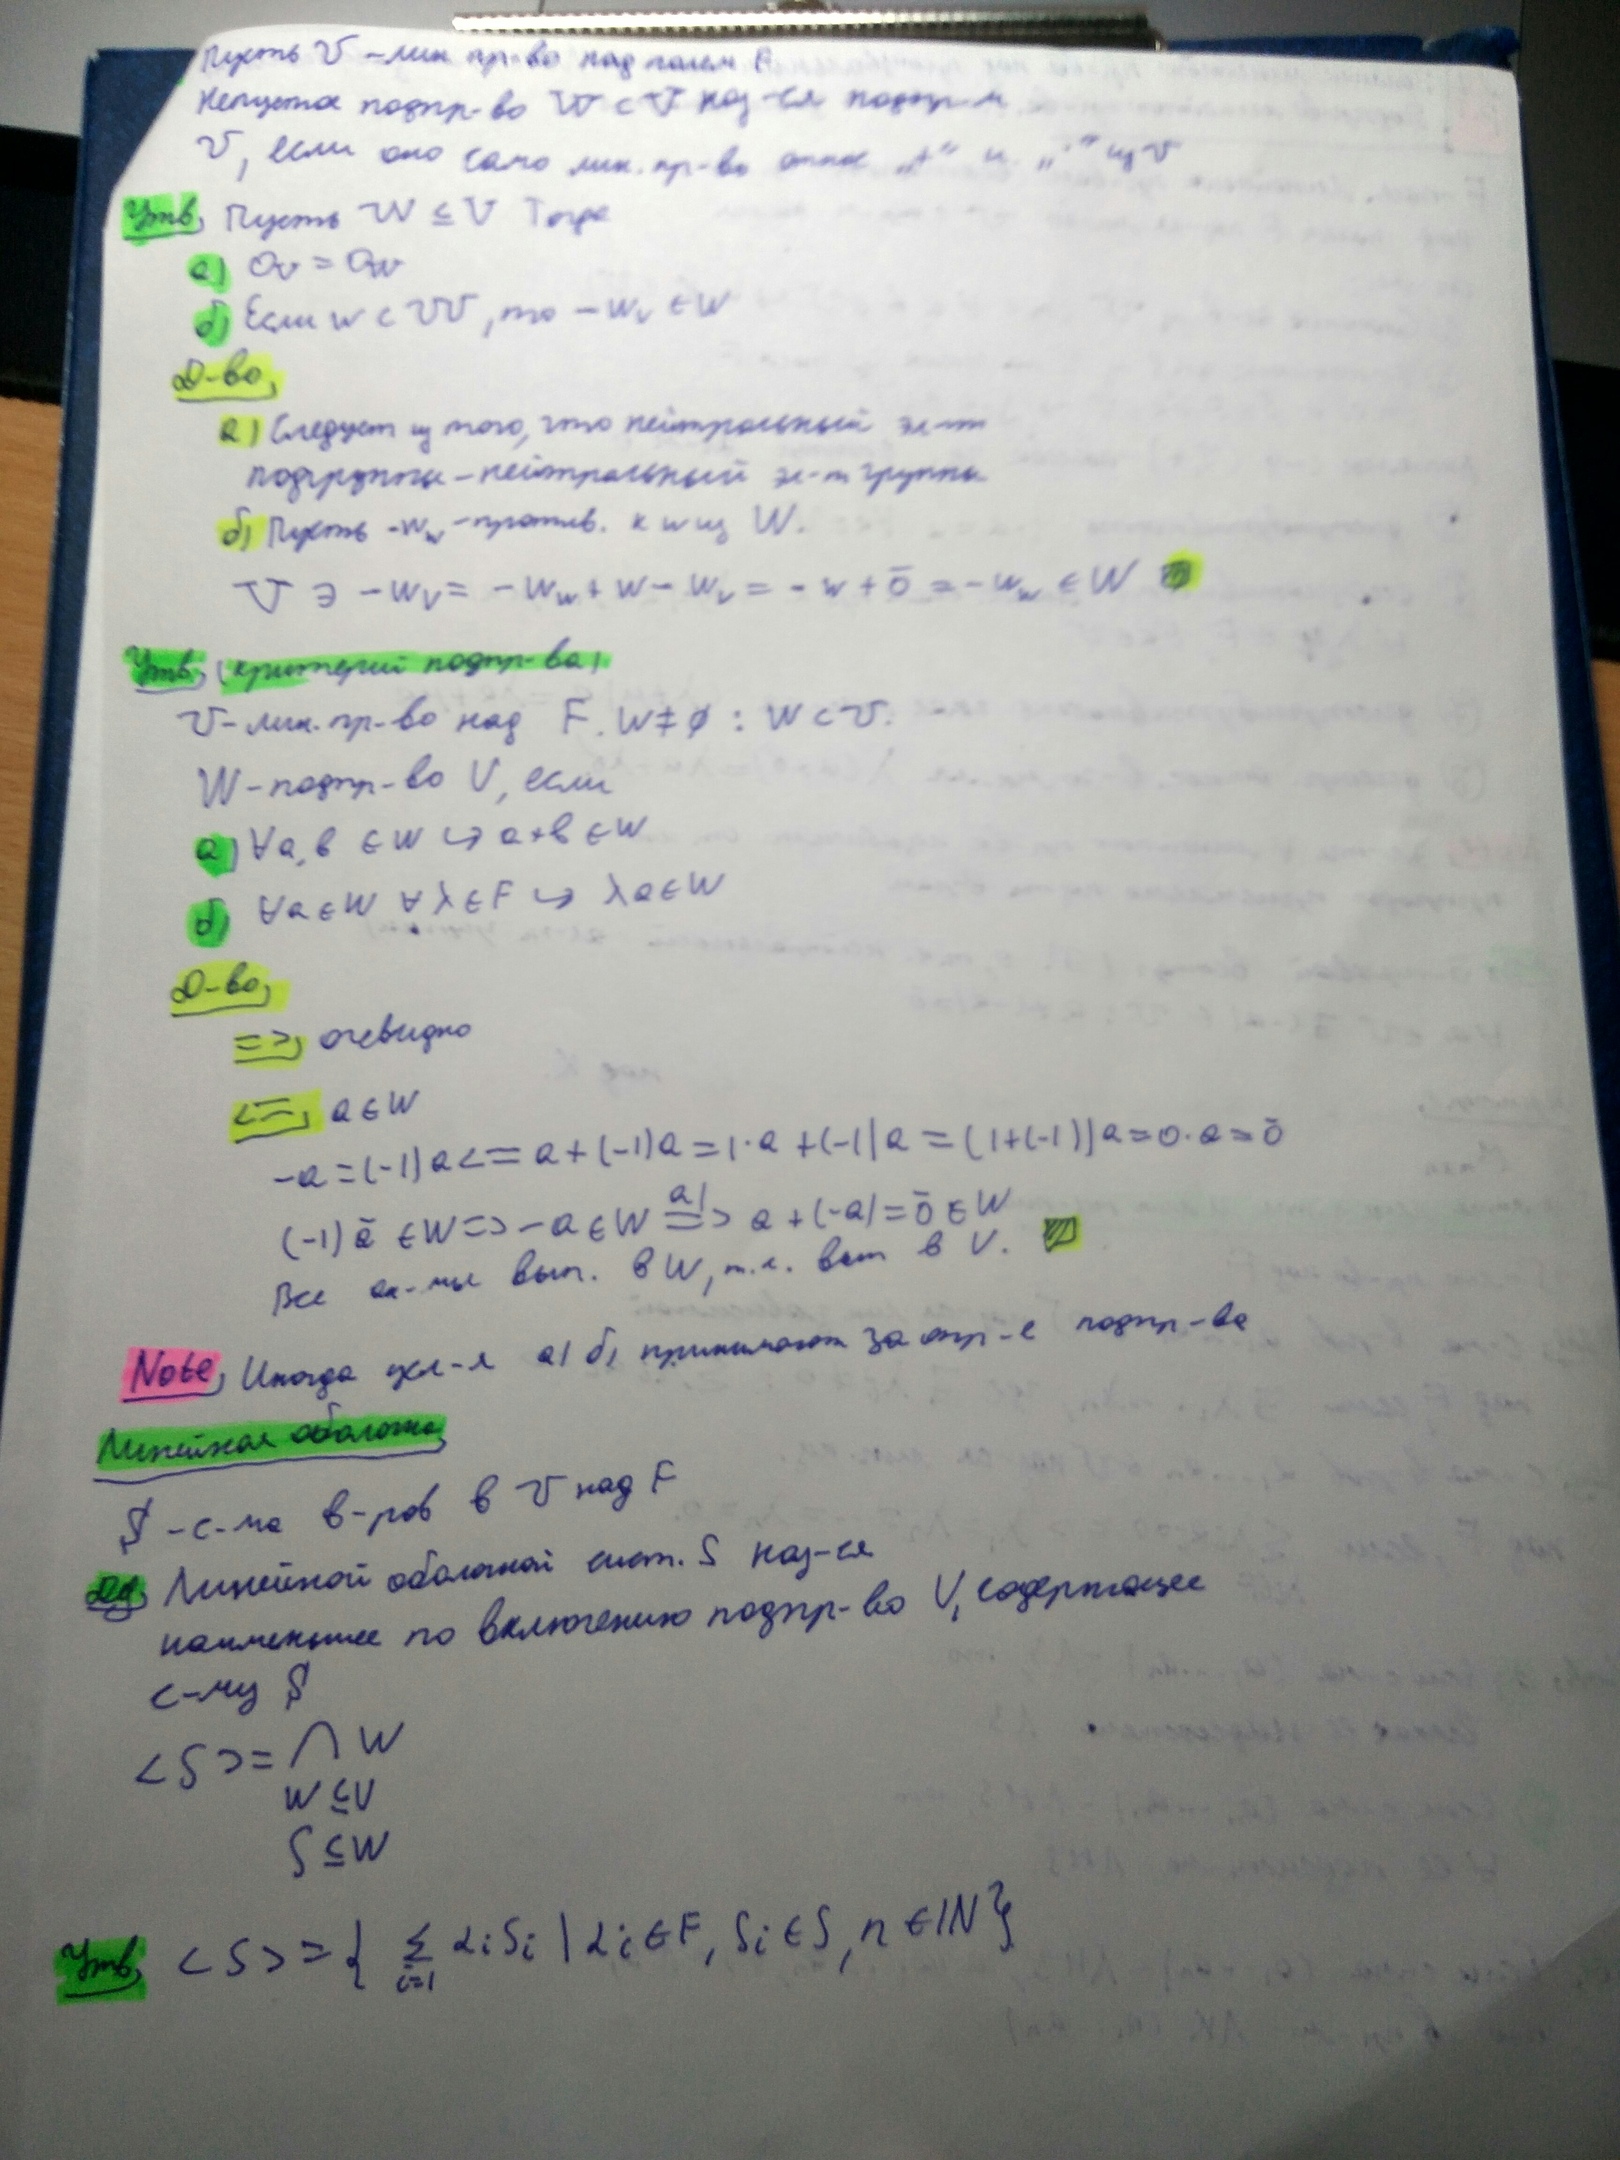 Пусть V – лин пр-во над полем F
Непустое подпр-во W ⊂ V наз-ся подпр-м
V, если оно само лин. пр-во относ "+" и "·" из V
Утв, Пусть W ⊆ V Тогда
а) 0v = 0w
б) Если w ∈ W, то -wv ∈ W
Д-во,
а) Следует из того, что нейтральный эл-т
подгруппы – нейтральный эл-т группы.
б) Пусть -ww – против. к w из W.
V ∋ -wv = -ww + w - wv = -w + 0̄ = -ww ∈ W
Утв, (критерий подпр-ва)
V – лин. пр-во над F. W ≠ ∅ : W ⊂ V.
W – подпр-во V, если
а) ∀a, b ∈ W ↪ a+b ∈ W
б) ∀a ∈ W ∀λ ∈ F ↪ λa ∈ W
Д-во,
=>, очевидно
<=, a ∈ W
-a = (-1)a <= a + (-1)a = 1·a + (-1)a = (1+(-1))a = 0·a = 0̄
(-1)ā ∈ W => -a ∈ W =a)=> a + (-a) = 0̄ ∈ W
Все ак-мы вып. в W, т.к. вып в V.
Note, Иногда усл-я а) б) принимают за опр-е подпр-ва
Линейная оболочка
S – с-ма в-ров в V над F
Линейной оболочкой сист. S наз-ся
наименьшее по включению подпр-во V, содержащее
с-му S
<S> = ∩ W
W ⊆ V
S ⊆ W
Утв, <S> = { Σ αi Si | αi ∈ F, Si ∈ S, n ∈ IN }
i=1